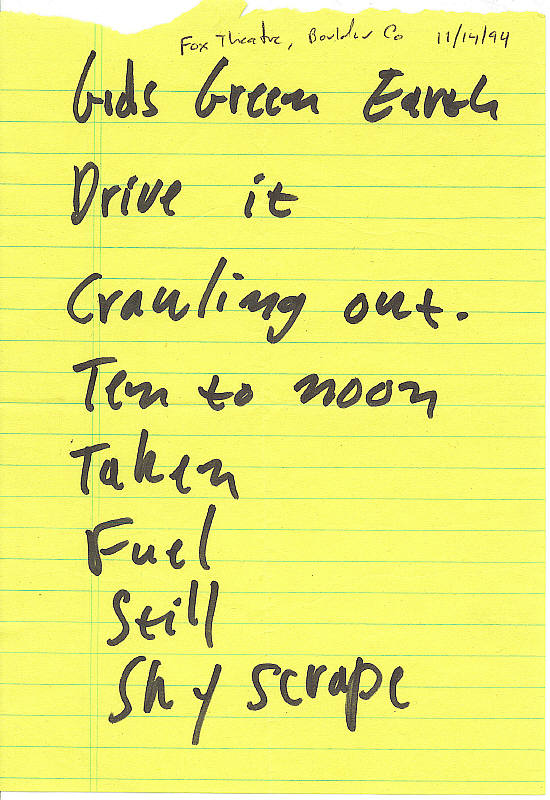 Fox Theatre, Boulder Co 11/14/94
Gods Green Earth
Drive it
Crawling out.
Ten to noon
Taken
Fuel
Still
Sky scrape